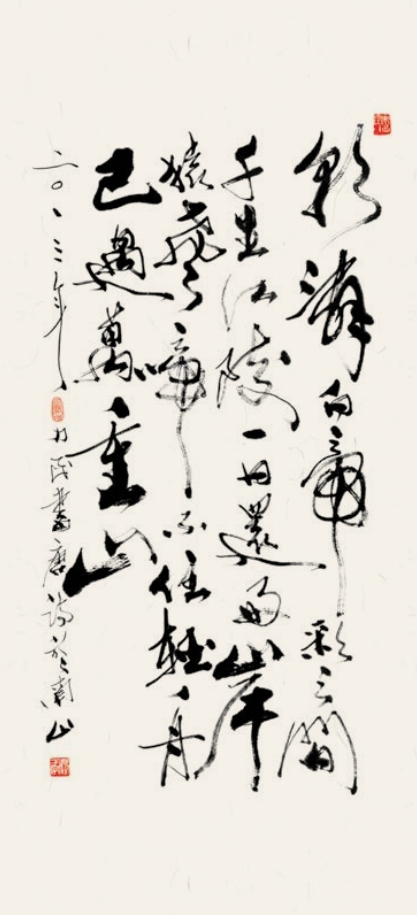 朝辭白帝彩云間
千里江陵一日還两岸
猿聲啼不住輕舟
已過萬重山
二〇一三年 書唐詩於南山